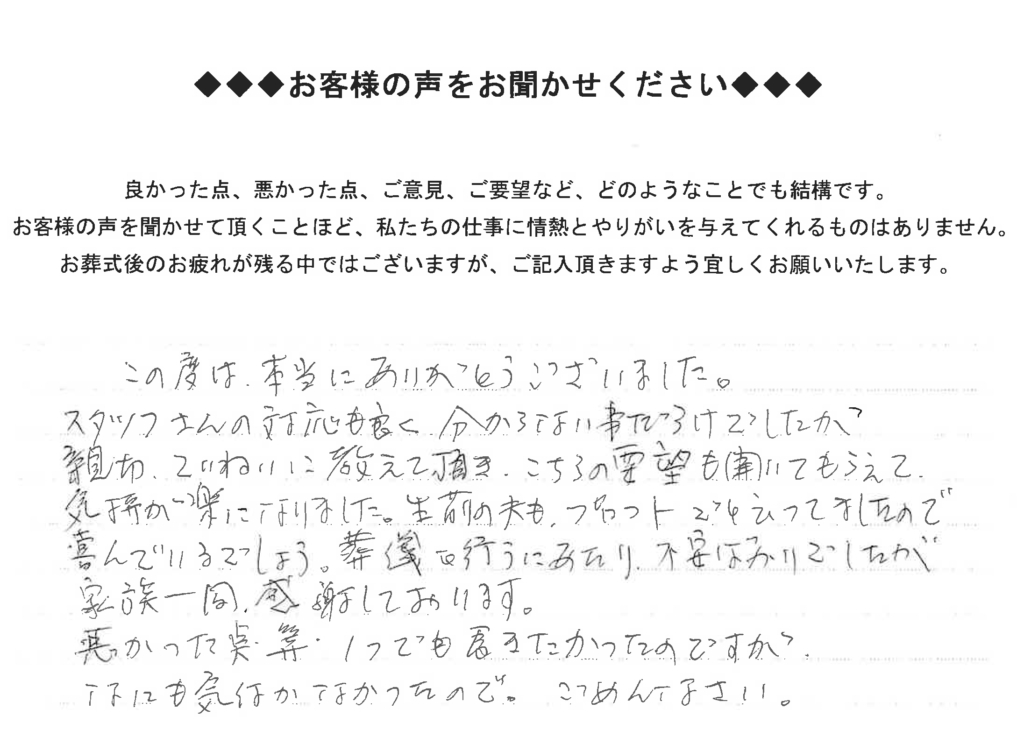 ◆◆◆お客様の声をお聞かせください◆◆◆
良かった点、悪かった点、ご意見、ご要望など、どのようなことでも結構です。
お客様の声を聞かせて頂くことほど、私たちの仕事に情熱とやりがいを与えてくれるものはありません。
お葬式後のお疲れが残る中ではございますが、ご記入頂きますよう宜しくお願いいたします。
この度は、本当にありがとうございました。
スタッフさんの対応も良く、分からない事だらけでしたが
親切、ていねいに教えて頂き、こちらの要望も聞いてもらえて、
気持が楽になりました。生前の夫も、
喜んでいるでしょう。葬儀を行うにあたり、不安ばかりでしたが
家族一同、感謝しております。
悪かった点・等・1つでも書きたかったのですが、
なにも気付かなかったので。ごめんなさい。